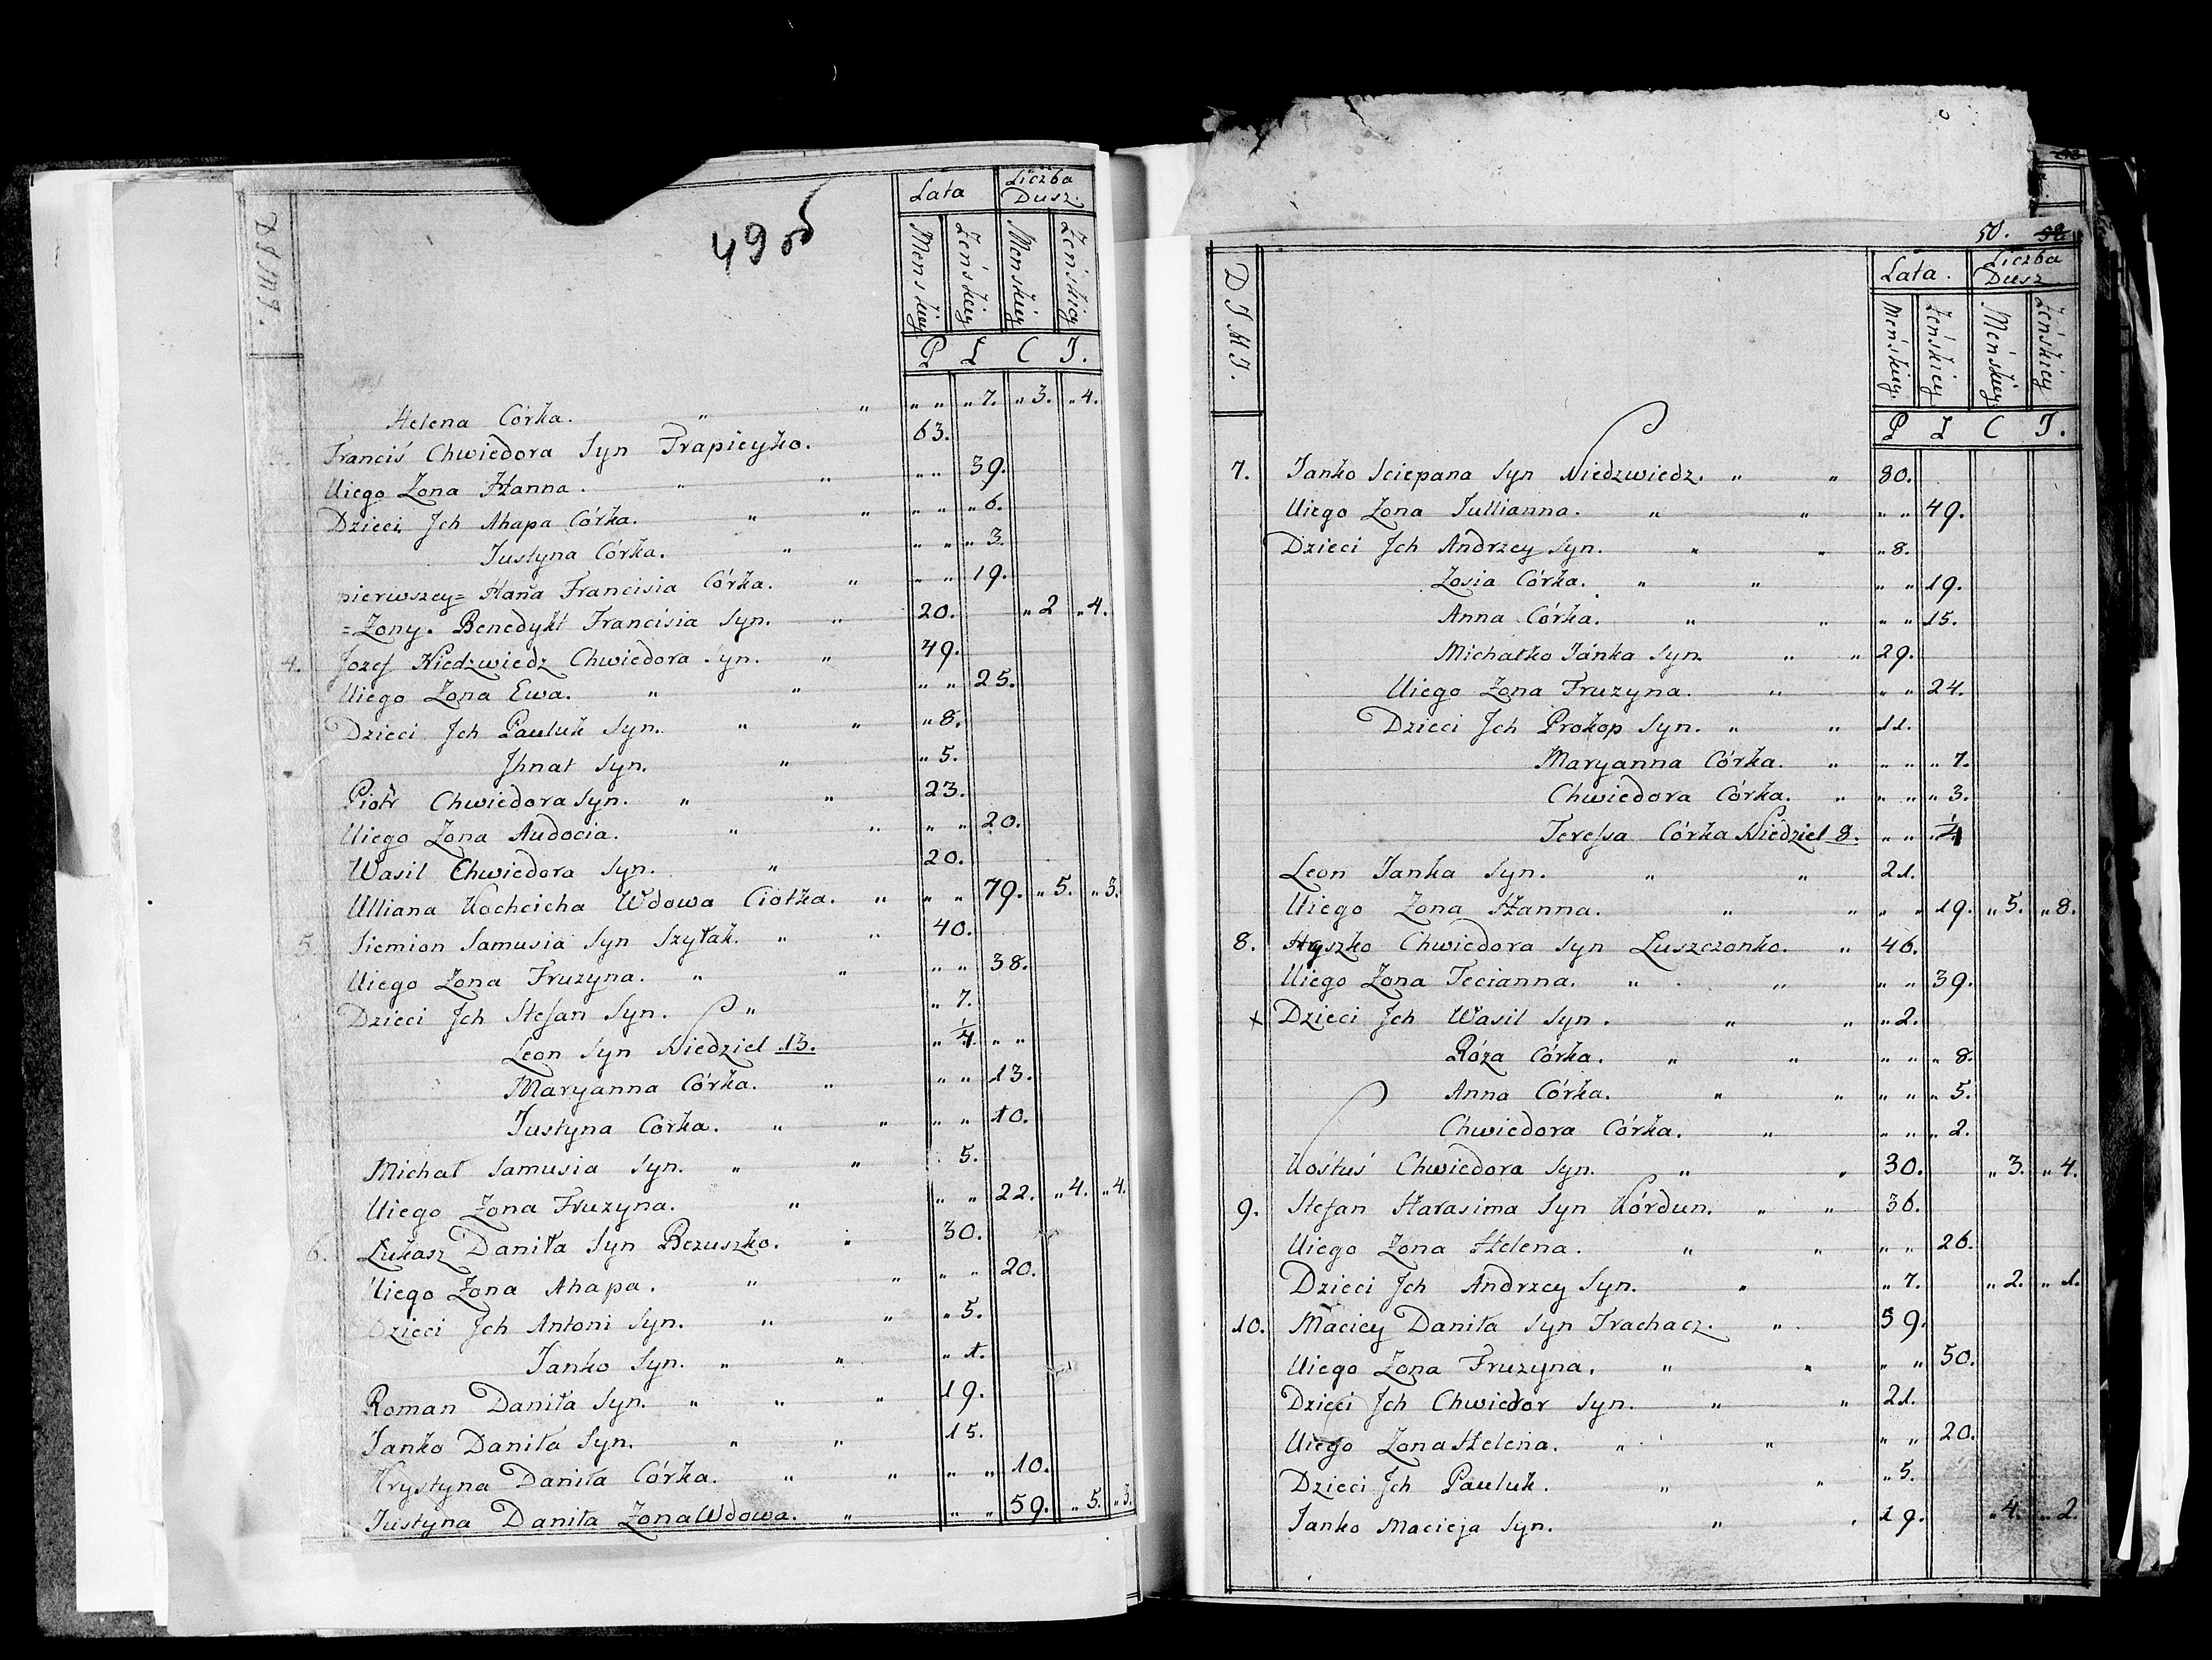 49 об
Lata
Liczba Dusz.
Męnskiey
Zeńskiey
Męnskiey
Zeńskiey
P L C J.
Helena Córka. " " " " " 7. " 3. " 4.
3. Franciś Chwiedora Syn Trapieyko. 63.
Uiego Zona Hanna. " " " " 39.
Dzieci Jch Ahapa Córka. " " " " " 6.
Justyna Córka. " " " " 3.
pierwszey= Hana Francisia Córka. " " " 19.
=Zony. Benedykt Francisia Syn. " 20. " 2 " 4.
4. Jozef Niedzwiedz Chwiedora Syn. " 49.
Uiego Zona Ewa. " " " " 25.
Dzieci Jch Pauluk Syn. " " " 8.
Jhnat Syn. " " 5.
Piotr Chwiedora Syn. " " 23.
Uiego Zona Audocia. " " " " 20.
Wasil Chwiedora Syn. " 20.
Ulliana Kochcicha Wdowa Ciotka. " " " 79. " 5. " 3.
5. Siemion Samusia Syn Szyłak. " " 40.
Uiego Zona Fruzyna. " " " " 38.
Dzieci Jch Stefan Syn. " " 7.
Leon Syn Niedziel 13. " 1/4. " "
Maryanna Córka. " " " 13.
Justyna Córka. " " " " 10.
Michał Samusia Syn. " " 5.
Uiego Zona Fruzyna. " " " 22. " 4. " 4.
6. Łukasz Daniła Syn Bezuszko. " 30.
Uiego Zona Ahapa. " " " " 20.
Dzieci Jch Antoni Syn. " " " 5.
Janko Syn. " " " 1.
Roman Daniła Syn. " " " 19.
Janko Daniła Syn. " " 15.
Krystyna Daniła Córka. " " " " 10.
Justyna Daniła Zona Wdowa. " " " 59. " 5. " 3.
50.
DJMJ.
Lata.
Liczba Dusz
Męńskiey
Zeńskiey
Męńskiey
Zeńskiey
P L C J.
7. Janko Sciepana Syn Niedzwiedz. " " 80.
Uiego Zona Jullianna. " " " " 49.
Dzieci Jch Andrzey Syn. " " " 8.
Zosia Córka. " " " " 19.
Anna Córka. " " " " 15.
Michałko Jánka Syn. " " 29.
Uiego Zona Fruzyna. " " " 24.
Dzieci Jch Prokop Syn. " " 11.
Maryanna Córka. " " " " 7.
Chwiedora Córka. " " " " 3.
Teressa Córka Niedziel 8. " " " 1/4
Leon Janka Syn. " " 21.
Uiego Zona Hanna. " " " " 19. " 5. " 8.
8. Hryszko Chwiedora Syn Luszczonko. " 46.
Uiego Zona Tecianna. " " " " 39.
x Dzieci Jch Wasil Syn. " " " 2.
Róza Córka. " " " " " 8.
Anna Córka. " " " " " 5.
Chwiedora Córka. " " " " 2.
Kośtuś Chwiedora Syn. " " 30. " 3. " 4.
9. Stefan Harasima Syn Kórdun. " " 36.
Uiego Zona Helena. " " " " 26.
Dzieci Jch Andrzey Syn. " " 7. " 2. " 1.
10. Maciey Daniła Syn Trachacz. " 59.
Uiego Zona Fruzyna. " " " " 50.
Dzieci Jch Chwiedor Syn. " " 21.
Uiego Zona Helena. " " " " 20.
Dzieci Jch Pauluk. " " " 5.
Janko Macieja Syn. " " 19. " 4. " 2.